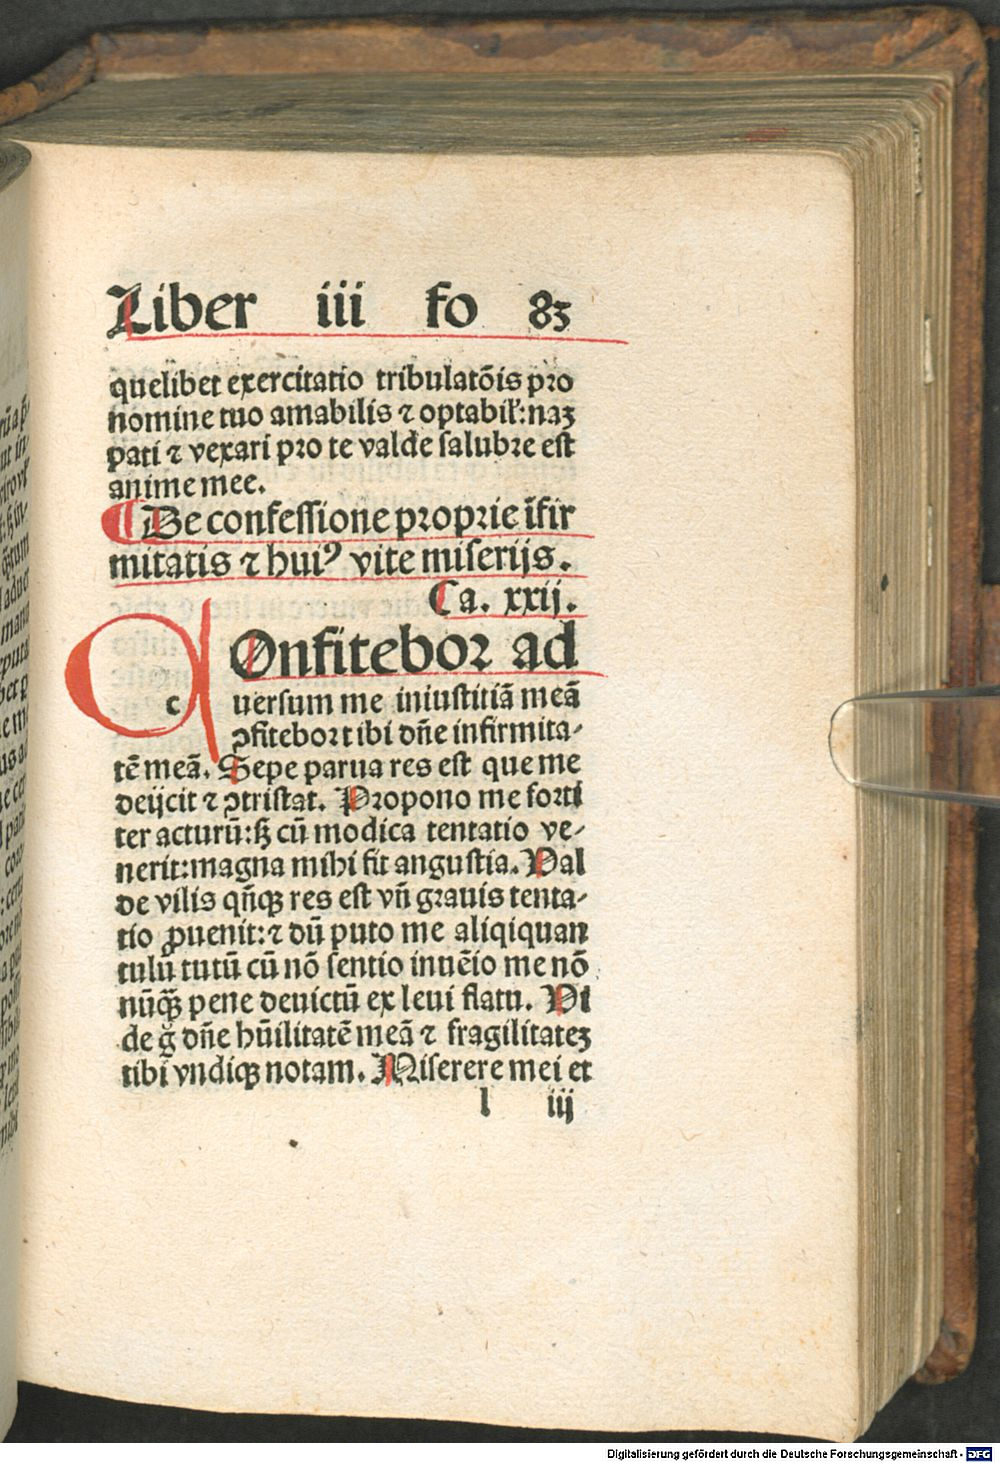 Liber iii fo 83
quelibet exercitatio tribulatõis pꝛo
nomine tuo amabilis ⁊ optabil̛: naꝫ
pati ⁊ vexari pꝛo te valde ſalubꝛe eſt
anime mee.
¶ De confeſſione pꝛopꝛie ĩfir
mitatis ⁊ huiꝰ vite miſerijs.
Ca. xxij.
c Onfiteboꝛ ad
uerſum me iniuſtitiã meã
ꝯfiteboꝛ tibi dñe infirmita⸗
tẽ meã. Sepe parua res eſt que me
deijcit ⁊ ꝯtriſtat. Pꝛopono me foꝛti
ter acturũ: ſꝫ cũ modica tentatio ve⸗
nerit: magna mihi fit anguſtia. Val
de vilis qñqꝫ res eſt vñ gꝛauis tenta⸗
tio ꝓuenit: ⁊ dũ puto me aliqiquan
tulũ tutũ cũ nõ ſentio inuẽio me nõ
nũqꝫ̃ pene deuictũ ex leui flatu. Vi
de g̊ dñe hũilitatẽ meã ⁊ fragilitateꝫ
tibi vndiqꝫ notam. Miſerere mei et
l iij
Digitalisierung gefördert durch die Deutsche Forschungsgemeinschaft - DFG